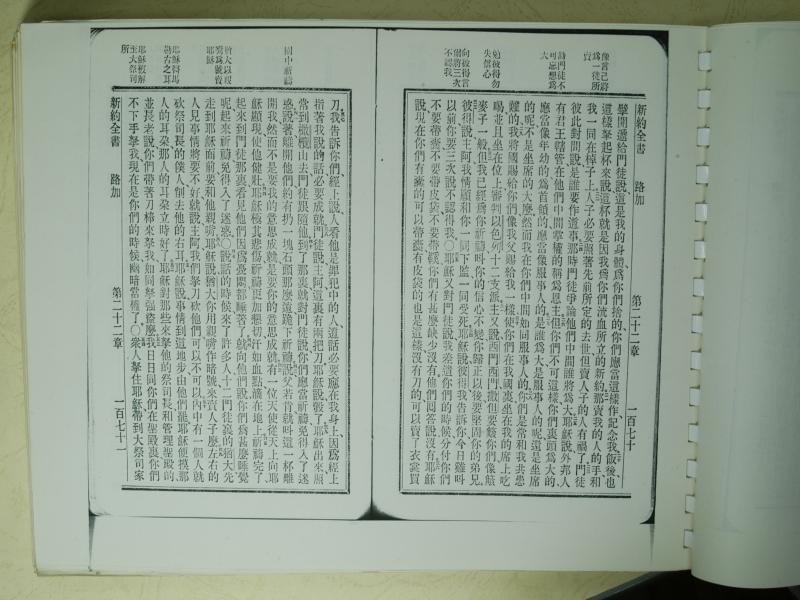 新約全書
路加
第二十二章
一百七十
擘開遞給門徒說這是我的身體爲你們捨的你們應當這樣作記念我飯後也
這樣拏起杯來說這杯就是因我爲你們流血所立的新約那賣我的人的手和
我一同在棹子上人子必要照著先前所定的去世但賣人子的人有禍了門徒
彼此對問說是誰要作這事那時門徒爭論他們中間誰將爲大耶穌說外邦人
有君王轄管在他們中間掌權的稱爲恩主但你們不可這樣你們裏頭爲大的
應當像年幼的爲首領的應當像服事人的是誰爲大是服事人的呢還是坐席
的呢不是坐席的大麼然而我在你們中間如同服事人的你們是常和我共患
難的我將國賜給你們像我父賜給我一樣使你們在我國裏坐在我的席上吃
喝並且坐在位上審判以色列十二支派主又說西門西門撒但要簸你們像簸
麥子一般但我已經爲你祈禱叫你的信心不變你歸正以後要堅固你的弟兄
彼得說主阿我情願和你一同下監一同受死耶穌說彼得我告訴你今日雞叫
以前你要三次說不認得我〇耶穌又對門徒說我差遣你們的時候分付你們
不要帶囊不要帶皮袋不要帶鞋你們有甚麼缺少沒有他們回答說沒有耶穌
說現在你們有囊的可以帶囊有皮袋的也是這樣沒有刀的可以賣了衣裳買
刀我告訴你們經上說人看他是罪犯中的人這話必要應在我身上因爲經上
指著我說的話必要成就門徒說主阿這裏有兩把刀耶穌說彀了耶穌出來照
常到橄欖山去門徒跟隨他到了那裏就對門徒說你們應當祈禱免得入了迷
惑說著離開他們約有扔一塊石頭那麼遠跪下祈禱說父若肯就叫這一杯離
開我然而不是要我的意思成就是要你的意思成就有一位天使從天上向耶
穌顯現使他健壯耶穌極其悲傷祈禱更加懇切汗如血點滴在地上祈禱完了
起來到門徒那裏看見他們因爲憂悶都睡著了就向他們說你們爲甚麼睡覺
呢起來祈禱免得入了迷惑〇說話的時候來了許多人十二門徒裏的猶大先
走到耶穌面前要和他親嘴耶穌說猶大你用親嘴作暗號來賣人子麼左右的
人見事情將要不好就說主阿我們拏刀砍他們可以不可以內中有一個人就
砍祭司長的僕人削去他的右耳耶穌說事情到這地步由他們罷耶穌便摸那
人的耳朶那人的耳朶立時好了耶穌對那些來拏他的祭司長和管理聖殿的
並長老說你們帶著刀棒來拏我如同拏強盜麼我日日同你們在聖殿裏你們
不下手拏我現在是你們的時候幽暗當權了〇衆人拏住耶穌帶到大祭司家
新約全書
路加
第二十二章
一百七十一
園中祈禱